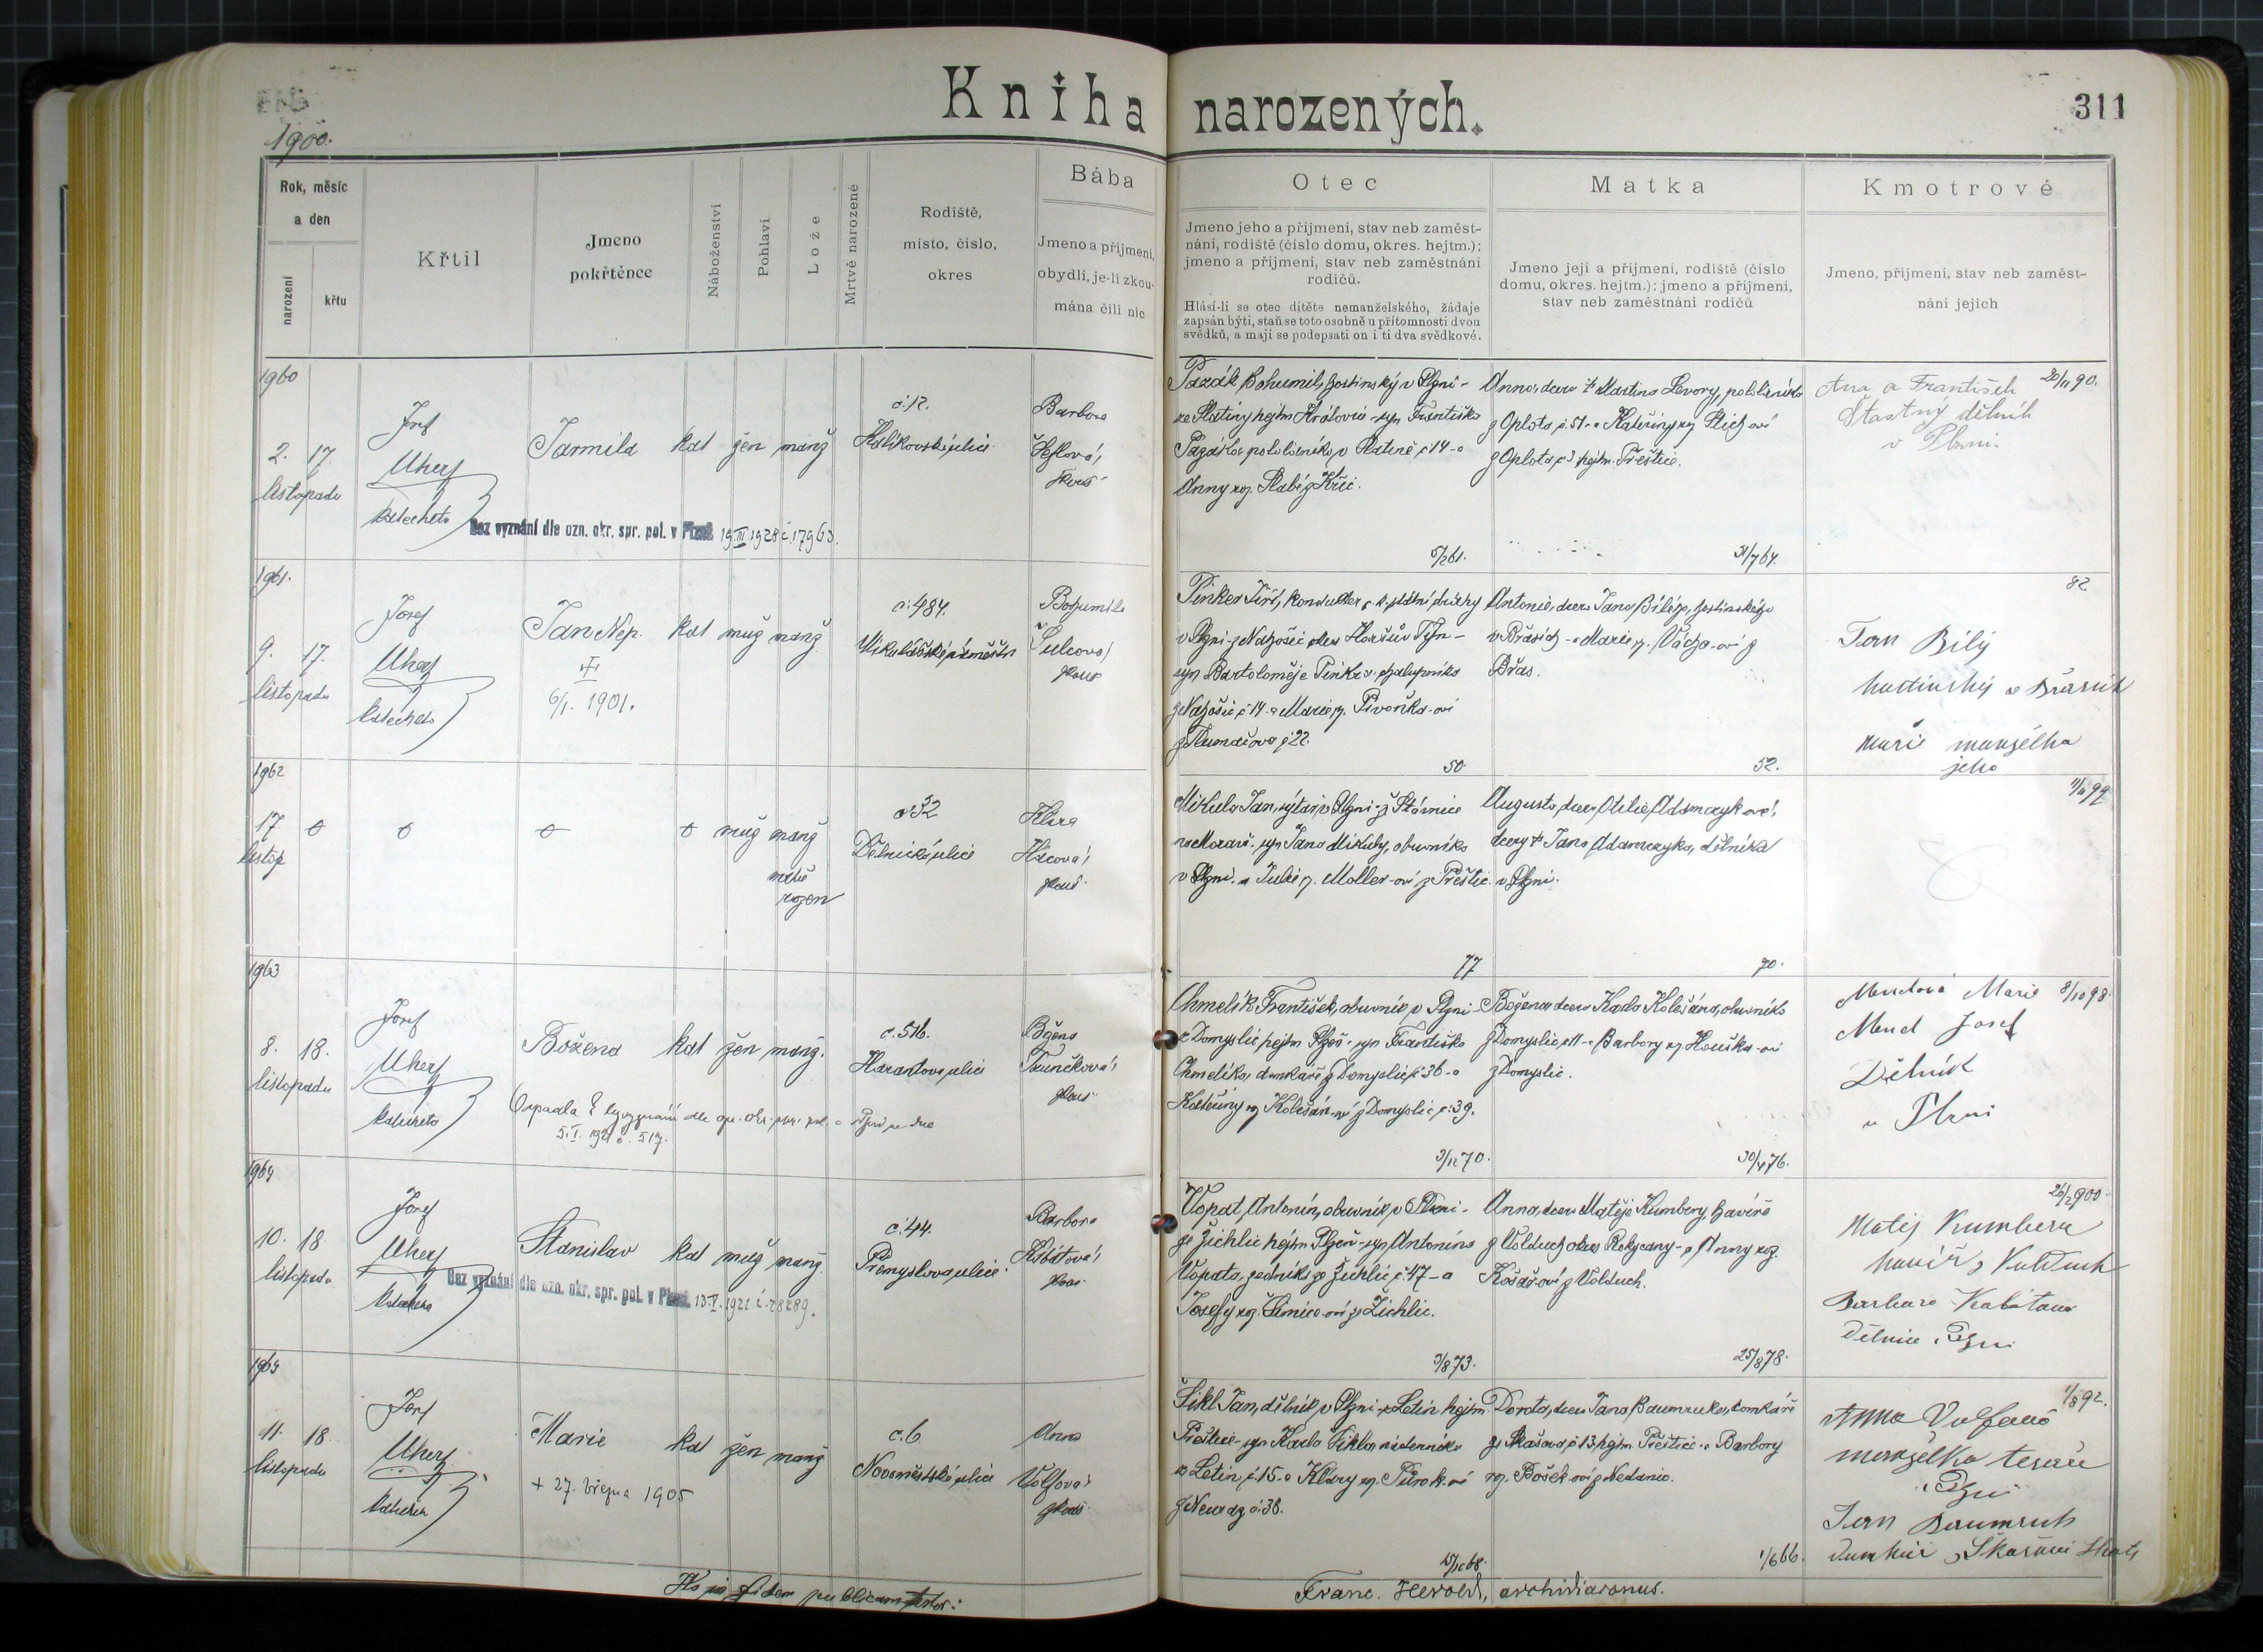 Kniha narozených.
311
1900.
Rok, měsíc
a den
narození
křtu
Křtil
Jmeno
pokřtěnce
Náboženství
Pohlaví
Lože
Mrtvě narozené
Rodiště,
místo, číslo,
okres
Bába
Jmeno a příjmení,
obydlí, je-li zkou-
mána čili nic
Otec
Jmeno jeho a příjmení, stav neb zaměst-
nání, rodiště (číslo domu, okres. hejtm.);
jmeno a příjmení, stav neb zaměstnání
rodičů.
Hlásí-li se otec dítěte nemanželského, žádaje
zapsán býti, staň se toto osobně u přítomnosti dvou
svědků, a mají se podepsati on i ti dva svědkové.
Matka
Jmeno její a příjmení, rodiště (číslo
domu, okres. hejtm.); jmeno a příjmení,
stav neb zaměstnání rodičů
Kmotrové
Jmeno, příjmení, stav neb zaměst-
nání jejich
1960
2. 17.
listopadu
Josef
Uherf
katecheta
Jarmila
kat žen manž
č. 12.
Barbora
Bez vyznání dle ozn. okr. spr. pol. v Plzni 19.III.1928 č. 17963.
Pazák Bohumil, hostinský v Plzni -
ze Slatiny hejtm Královic - syn Františka
Pazáka, pololáníka v Slatině č 14 - a
Anny roz. Slabé z Kříc.
5/2 61.
Anna, dcera † Martina Levory, pololáníka
z Oplota, č. 51 - a Kateřiny roz
z Oplota č 3 hejtm. Přeštic.
31/7 64.
Ana a František
Štastný dělník
v Plzni.
20/11 90.
1961.
9. 17.
listopadu
Josef
Uherf
katecheta
Jan Nep.
6/1. 1901.
kat muž manž
č. 484.
Mikulášské náměstí
Bohumila
Šulcová
Pinker Jiří, kondukter c. k. státní dráhy
v Plzni - z okres Horšův Týn -
syn Bartoloměje Pinkra, chalupníka
č 14 - a Marie r. Pivoňka-ovi
č 22.
50
Antonie, dcera Jana Bílého, hostinského
v Břasích - a Marie r. Vácha-ovi z
Břas.
52.
82
Jan Bílý
hostinský v Břasích
Marie manželka
jeho
1962
17.
listop
muž manž
mrtvě
rozen
č 32
Dělnická ulice
Klára
Mikula Jan, rytar v Plzni - z Štávnice
na Moravě - syn Jana Mikuly, obuvníka
v Plzni - a Julie r. Moller-ovi z Přeštic.
77
Augusta, dcera Otilie Adamczykové,
dcery † Jana Adamczyka, dělníka
v Plzni.
70.
11/10 99
1963
8. 18.
listopadu
Josef
Uherf
katecheta
Božena
kat žen manž.
č. 516.
Harantova ulice
Božena
Tauněková
5.I. 1921 č. 517.
Chmelík František, obuvník v Plzni -
z Domyslic, hejtm Plzeň - syn Františka
Chmelíka, domkáře z Domyslic č 36 - a
Kateřiny roz Kolešár-ovi z Domyslic č. 39.
3/12 70.
Božena dcera Karla Kolešára, obuvníka
z Domyslic č 11 - a Barbory roz. Houška-ovi
z Domyslic.
30/4 76.
Mendová Marie
Mend Josef
Dělník
v Plzni
8/10 98.
1964
10. 18.
listopadu
Josef
Uherf
katecheta
Stanislav
kat muž manž.
č. 44.
Přemyslova ulice
Barbora
Kábátová
Bez vyznání dle ozn. okr. spr. pol. v Plzni 13.V.1921 č. 28289.
Vopat Antonín, obuvník v Plzni -
ze Žichlic hejtm. Plzeň - syn Antonína
Vopata, sedníka ze Žichlic č 47 - a
Josefy roz. Šimice-ovi ze Žichlic.
3/8 73.
Anna, dcera Matěje Kumbery, havíře
z Volduch okres Rokycany - a Anny roz.
Košař-ovi z Volduch.
25/8 78.
26/2 900.
Matěj Kumbera
havíř z Volduch
Barbara Kabátova
Dělnice v Plzni
1965
11. 18.
listopadu
Josef
Uherf
katecheta
Marie
+ 27. března 1905
kat žen manž
č. 6.
Novoměstská ulice
Anna
Volfová
Šikl Jan, dělník v Plzni - z Letin hejtm.
Přeštic - syn Karla Šikla nádeníka
z Letin č 15 - a Kláry roz. Tůrok-ovi
č. 36.
15/10 68.
Dorota, dcera Jana Baumruka, domkáře
ze Skašova č 13, hejtm. Přeštic - a Barbory
roz. Bošek-ovi z Nedanic.
1/6 66.
1/8 92.
Anna Volfová
manželka tesaře
v Plzni
Jan Baumruk
domkář
Franc. Herold, archidiaconus.